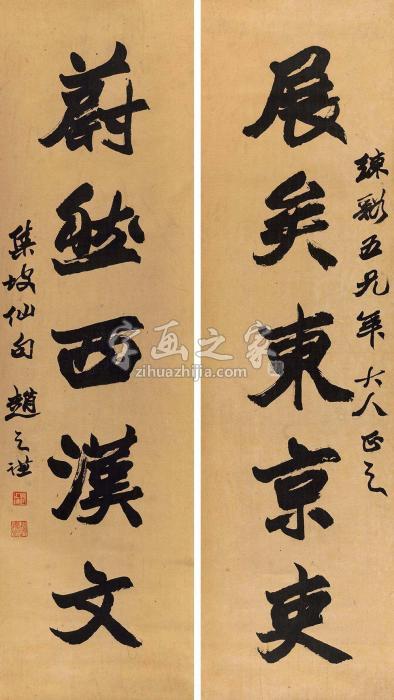 練谿五兄年大人正之
展矣東京吏
蔚然西漢文
集坡仙句 趙之謙
字画之家
zihuazhijia.com